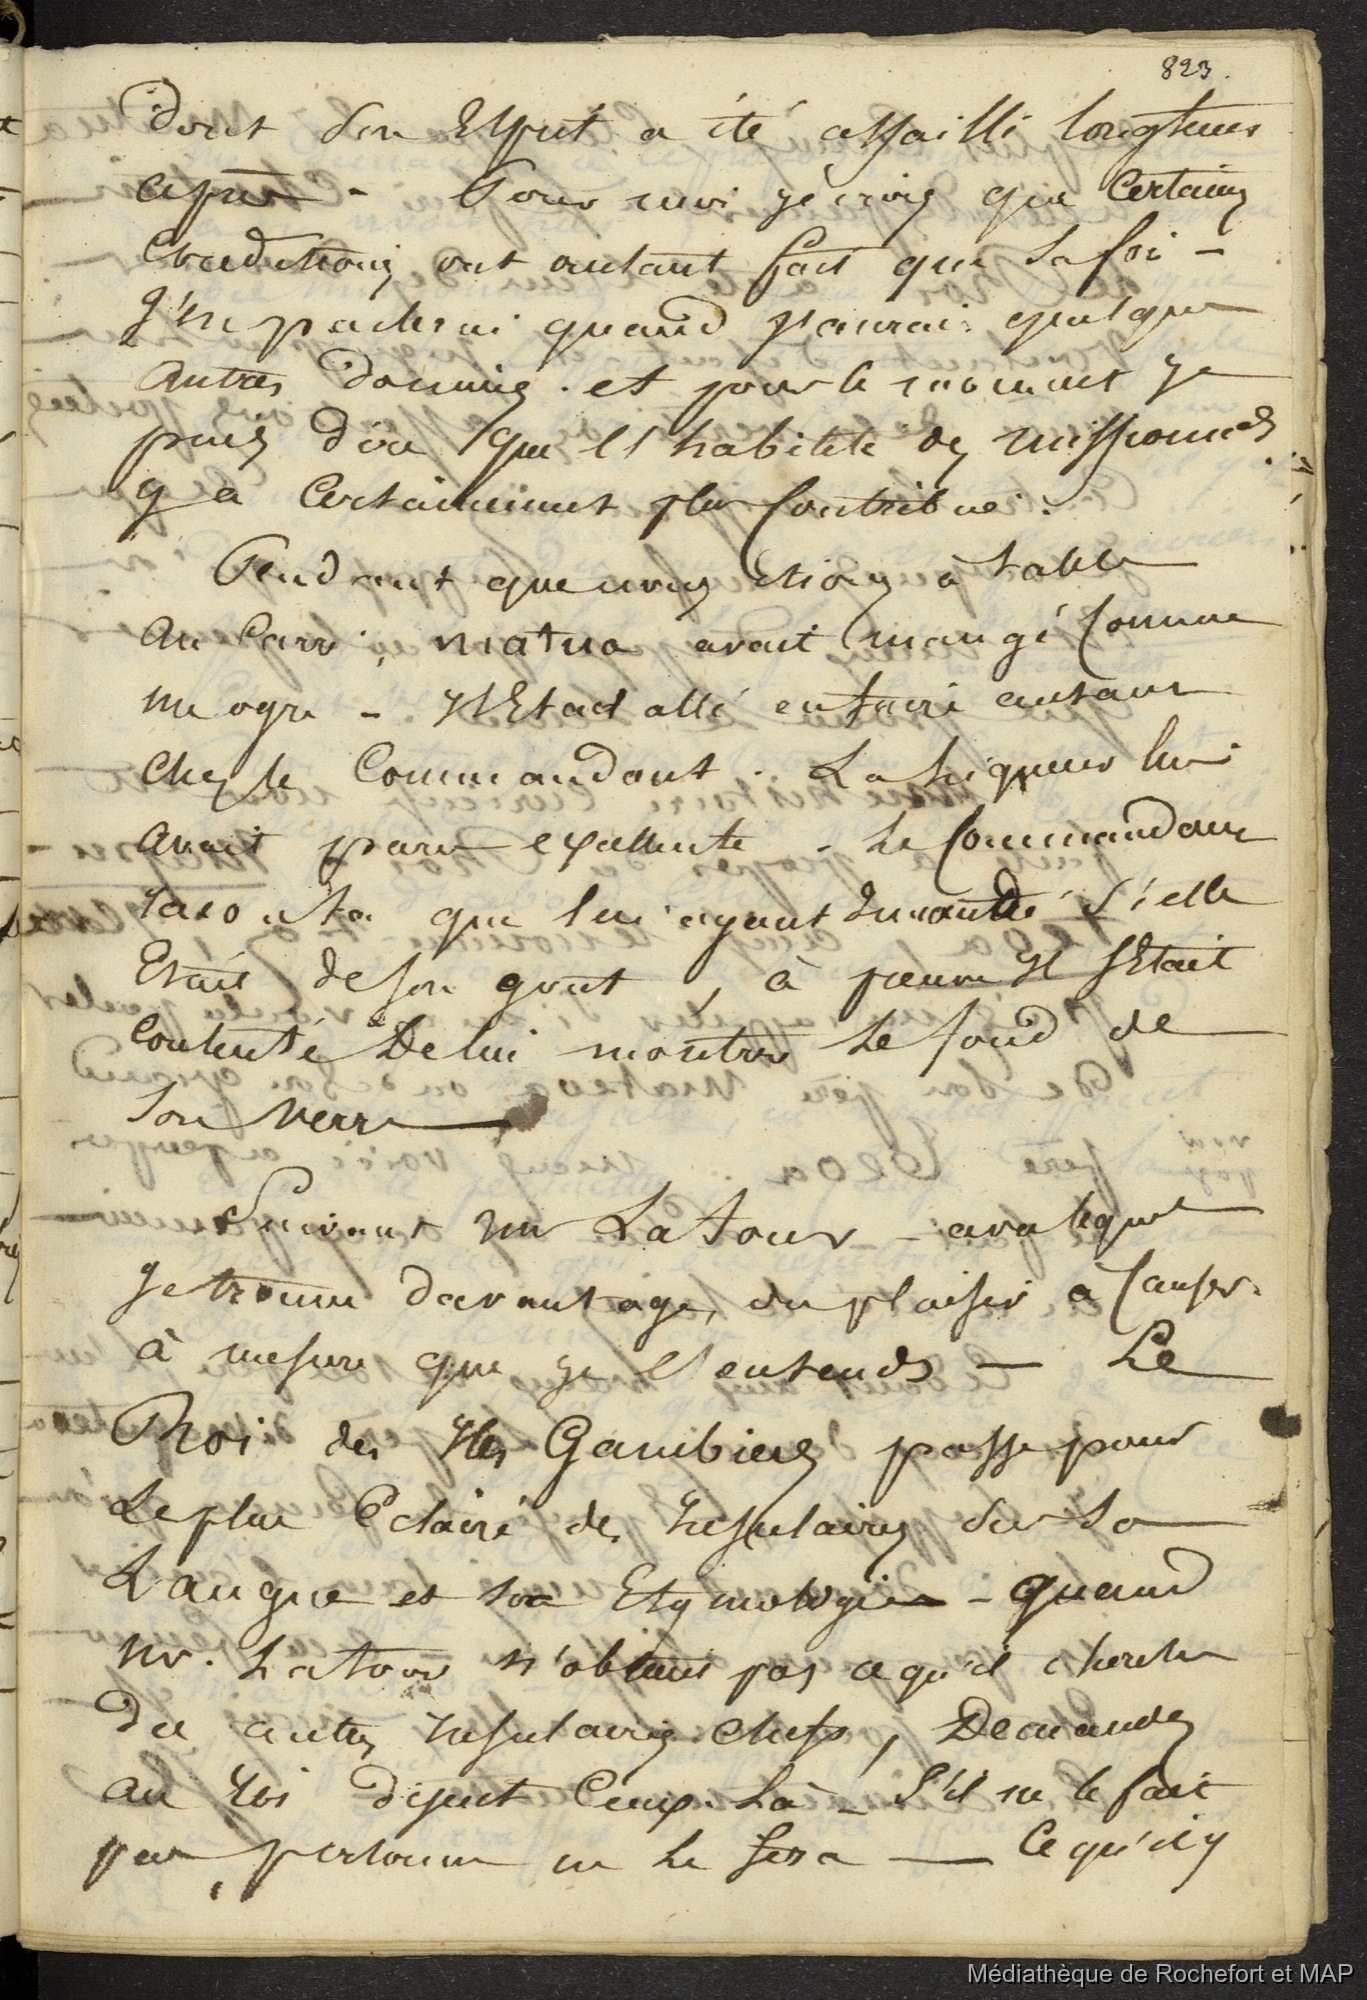 823.
Dont son Esprit a été assailli longtems
après - Pour moi je crois que Certaines
traditions ont autant fait que la foi -
J'en parlerai quand j'aurai quelques
autres données. et pour le moment je
puis dire que l'habileté des missionres
y a Certainement plus Contribué.
Pendant que nous Etions à table
au Carré, matua avait mangé Comme
un ogre - Il Etait allé en faire autant
Chez le Commandant. La liqueur lui
avait paru excellente. Le Commandant
raconta que lui ayant demandé si elle
Etait de son gout, à peine Il s'Etait
Contenté De lui montrer Le fond de
Son verre
Suivant mr LaTour - avec lequel
je trouve davantage, du plaisir a Causer.
à mesure que je l'entends — Le
Roi des Iles Gambiers passe pour
Le plus Eclairé des Insulaires sur la
Langue et son Etymologie - quand
mr. Latour n'obtient pas ce qu'il cherche
des autres insulaires chefs, Demandez
au roi disent Ceux-là - S'il ne le fait
pas, personne ne Le fera — Ce qu'il y
Médiathèque de Rochefort et MAP